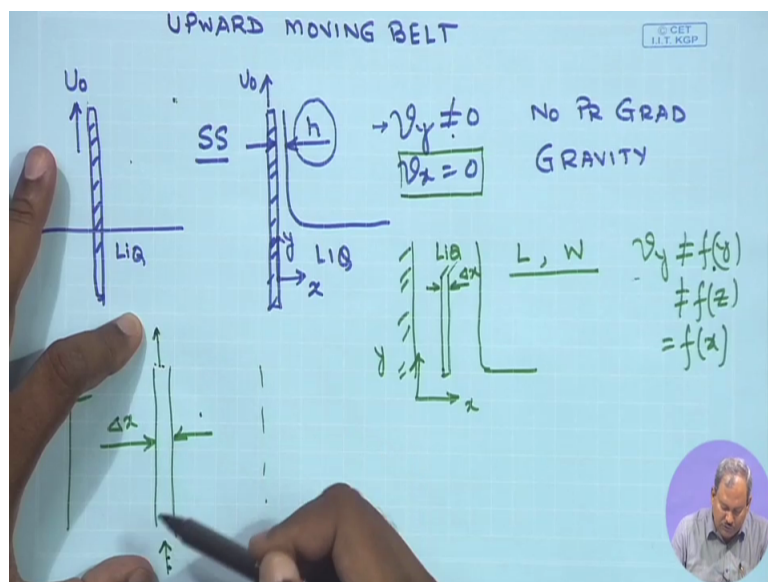 UPWARD MOVING BELT
© CET
I.I.T. KGP
U₀
LIQ
U₀
SS
h
y
LIQ
x
→ 𝒱y ≠ 0
𝒱x = 0
NO PR GRAD
GRAVITY
LIQ
Δx
y
x
L, W
𝒱y ≠ f(y)
≠ f(z)
= f(x)
Δx